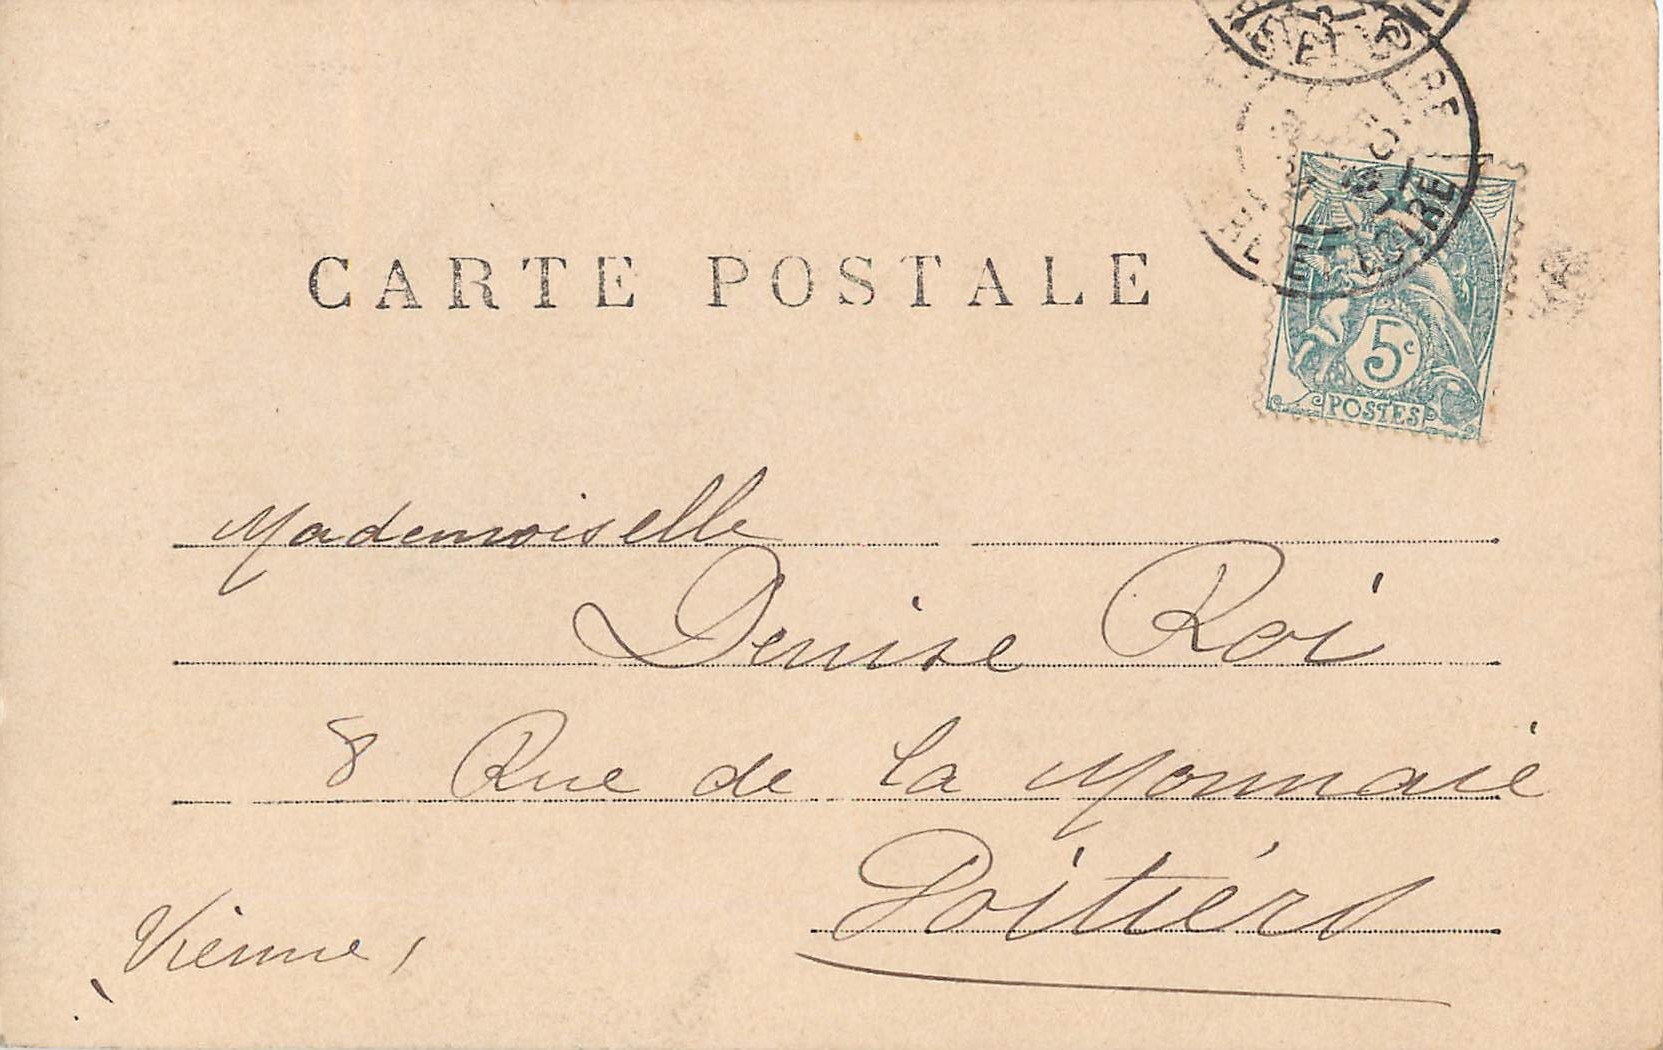 CARTE POSTALE
ET LOIRE
5c
POSTES
Mademoiselle
Denise Roi
8 Rue de la Monnaie
Poitiérs
Vienne,